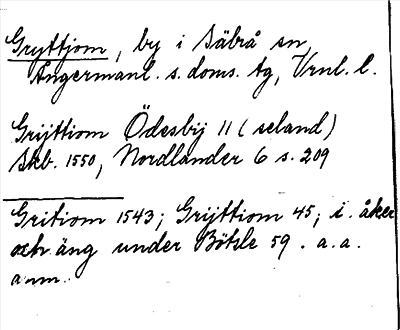 Gryttjom, by i Säbrå sn,
Ångermanl. s. doms. tg, Vrnl. l.
Grijttiom Ödesbij 11 (seland)
Skb. 1550, Nordlander 6 s. 209
Gritiom 1543; Grijttiom 45; i. åker
och äng under Böhle 59. a.a.
anm.